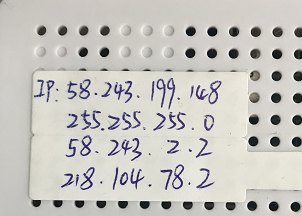 IP: 58.243.199.148
255.255.255.0
58.243.2.2
218.104.78.2